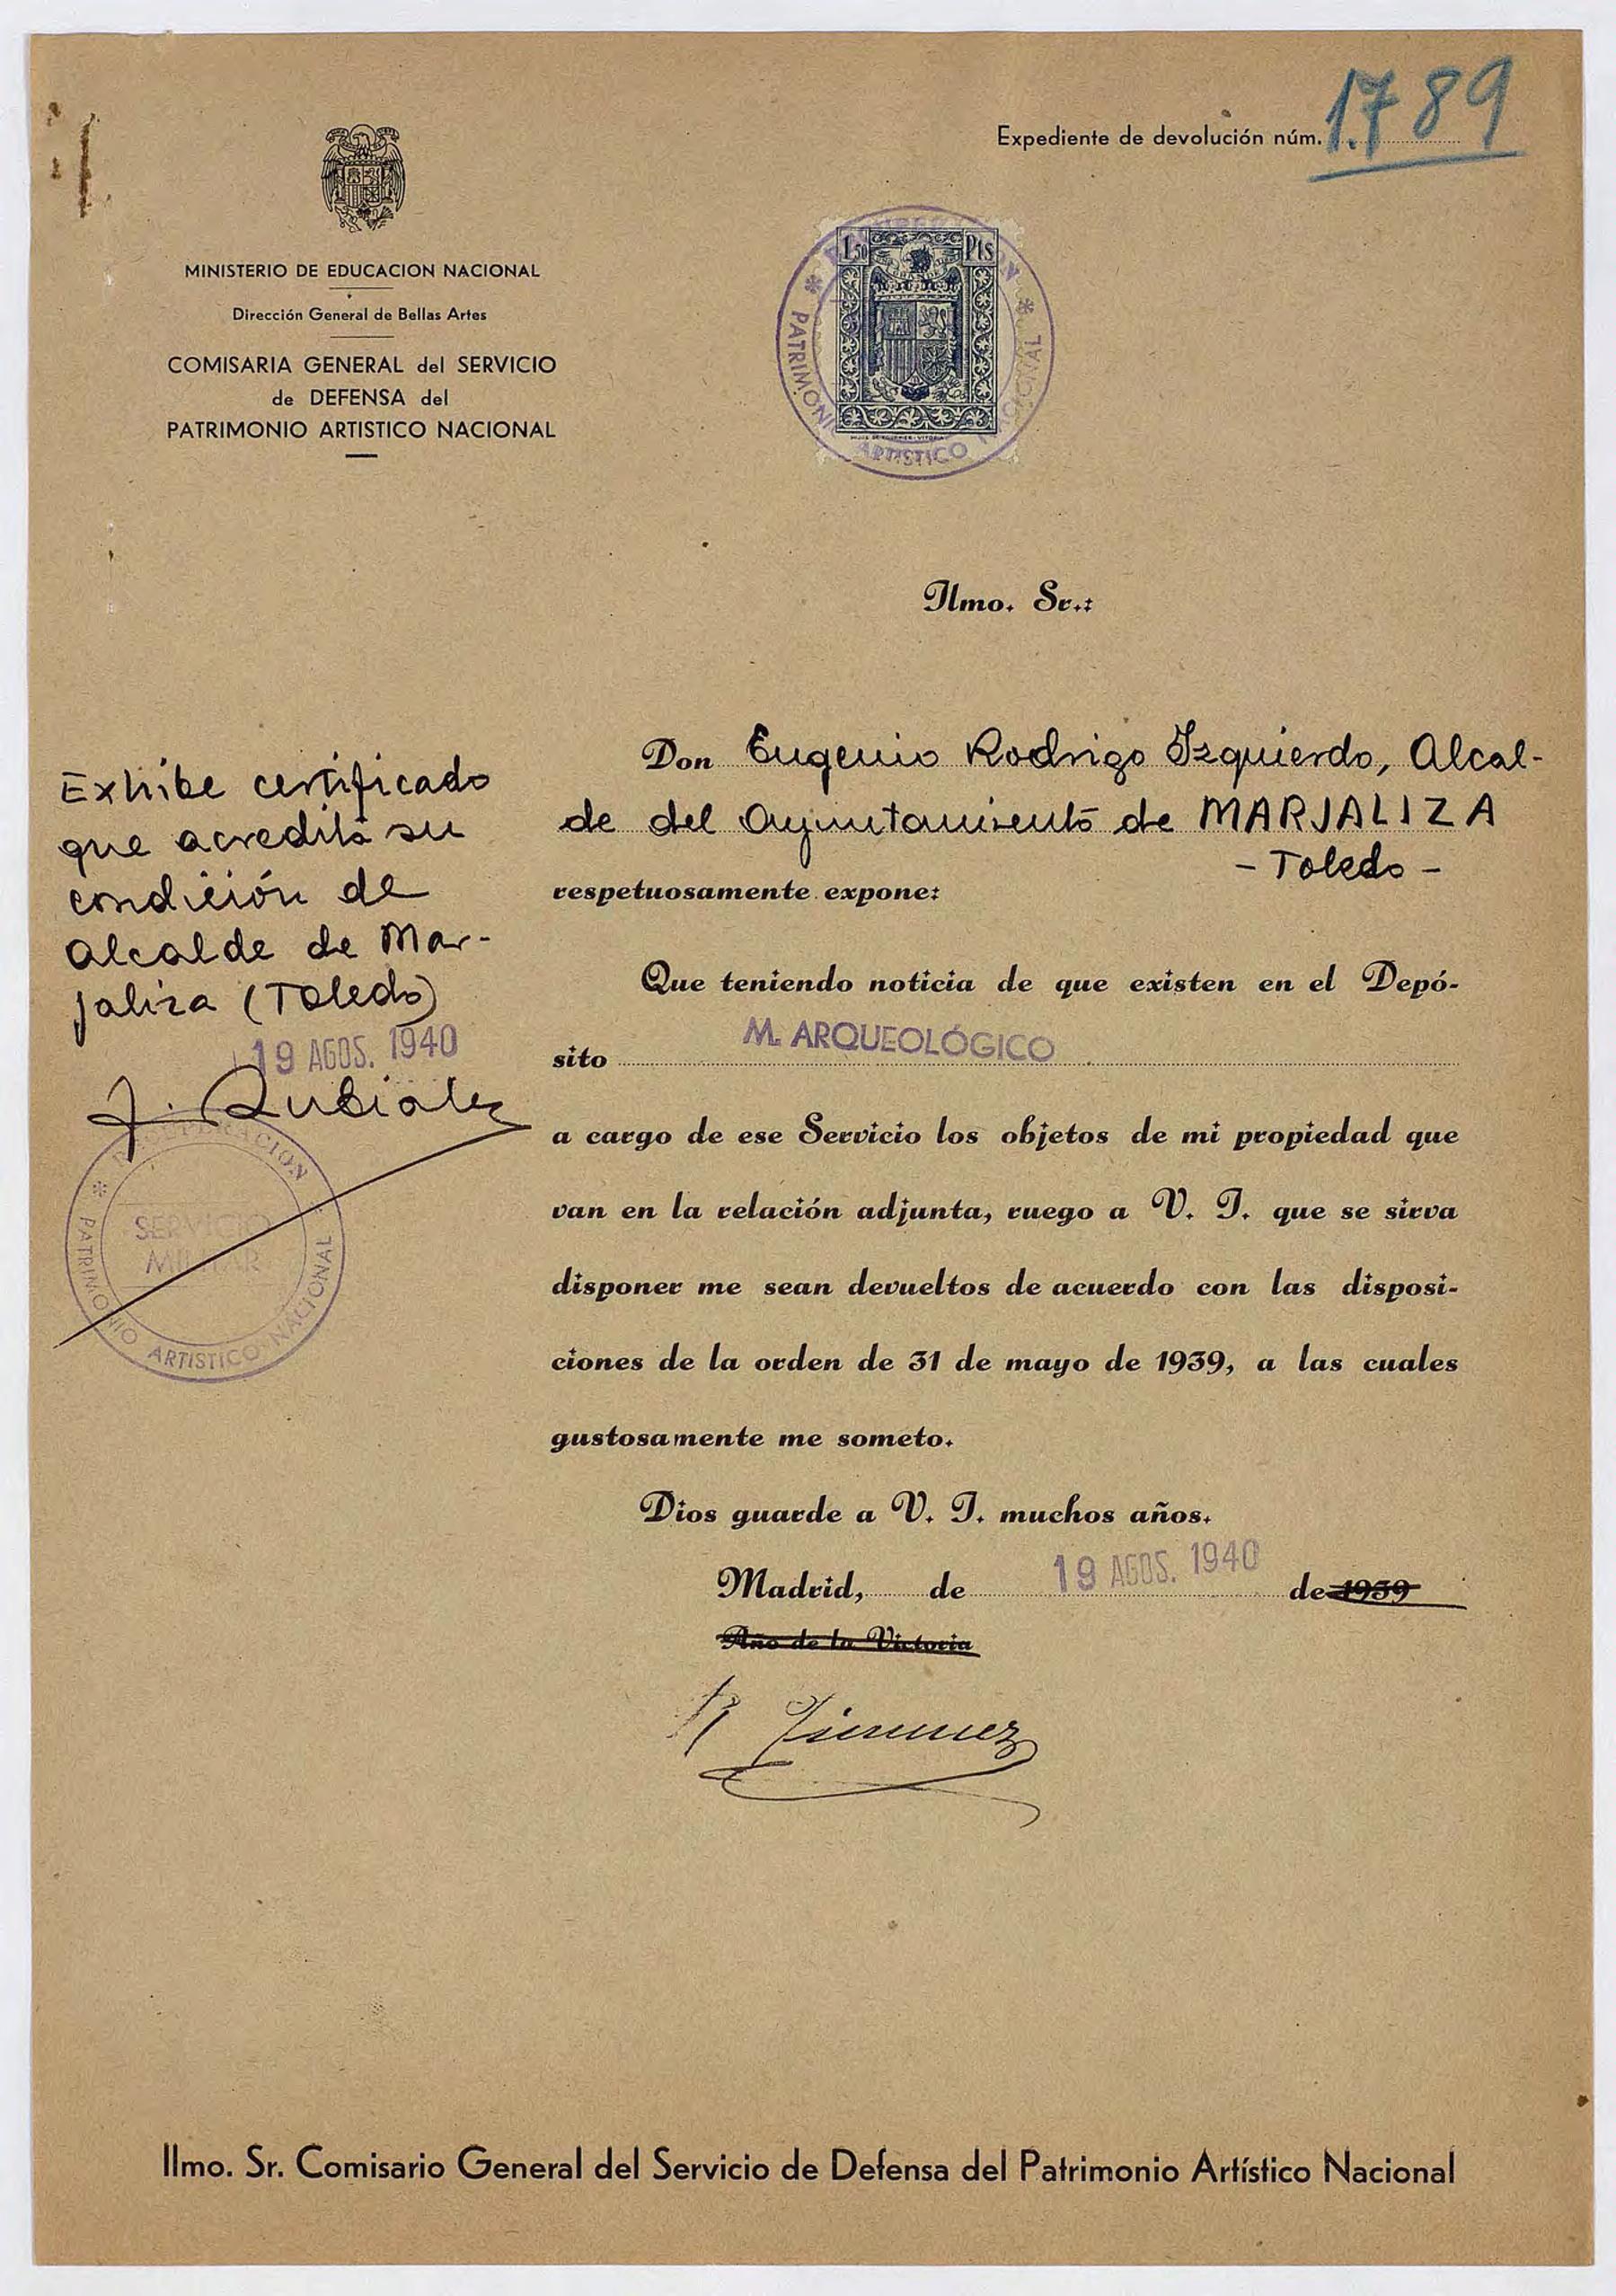 Expediente de devolución núm. 1.789
MINISTERIO DE EDUCACION NACIONAL
Dirección General de Bellas Artes
COMISARIA GENERAL del SERVICIO
de DEFENSA del
PATRIMONIO ARTISTICO NACIONAL
1,50 Pts
PATRIMONIO ARTISTICO NACIONAL
Ilmo. Sr.:
Don Eugenio Rodrigo Izquierdo, Alcal-
de del Ayuntamiento de MARJALIZA
- Toledo -
respetuosamente expone:
Que teniendo noticia de que existen en el Depó-
sito M. ARQUEOLÓGICO
a cargo de ese Servicio los objetos de mi propiedad que
van en la relación adjunta, ruego a V. I. que se sirva
disponer me sean devueltos de acuerdo con las disposi-
ciones de la orden de 31 de mayo de 1939, a las cuales
gustosamente me someto.
Dios guarde a V. I. muchos años.
Madrid, de 19 AGOS. 1940 de 1939
Año de la Victoria
Exhibe certificado
que acredita su
condición de
Alcalde de Mar-
jaliza (Toledo)
19 AGOS. 1940
RECUPERACION
SERVICIO
MILITAR
PATRIMONIO ARTISTICO NACIONAL
Ilmo. Sr. Comisario General del Servicio de Defensa del Patrimonio Artístico Nacional